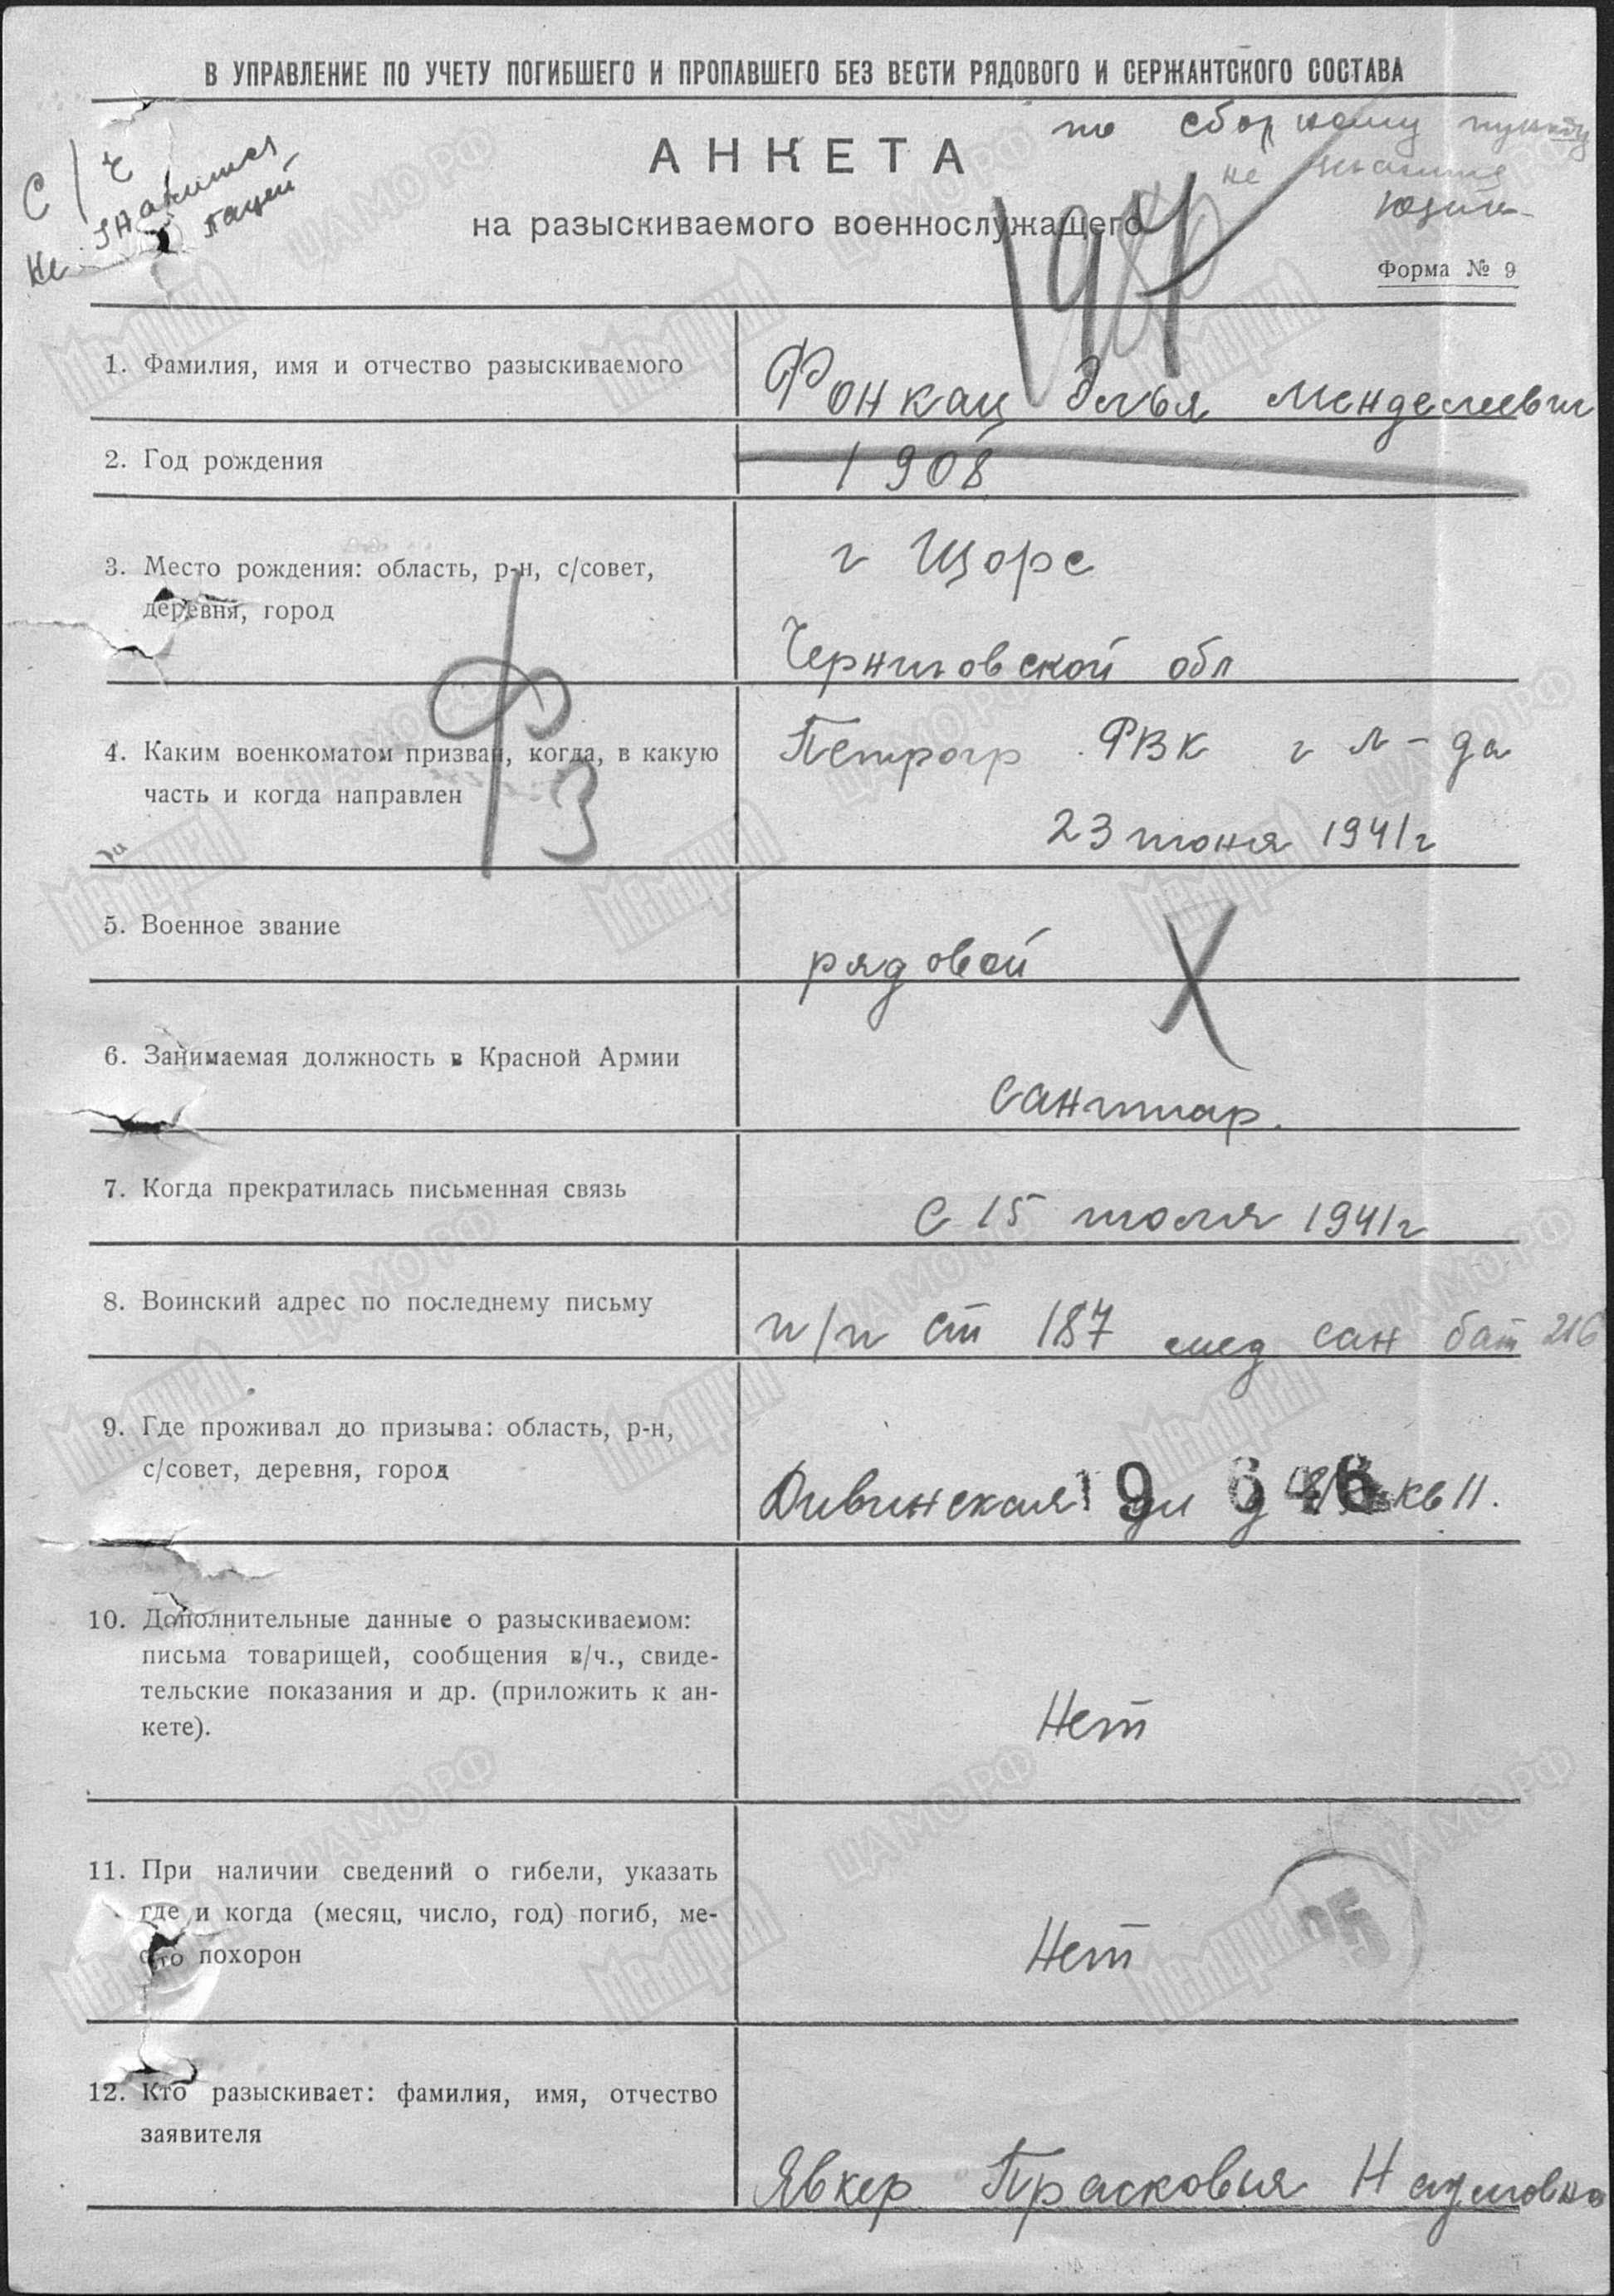 В УПРАВЛЕНИЕ ПО УЧЕТУ ПОГИБШЕГО И ПРОПАВШЕГО БЕЗ ВЕСТИ РЯДОВОГО И СЕРЖАНТСКОГО СОСТАВА
по сборному пункту
не
АНКЕТА
С/
Не
на разыскиваемого военнослужащего
194
Форма № 9
1. Фамилия, имя и отчество разыскиваемого
Фонкац Элья Менделевич
2. Год рождения
1908
3. Место рождения: область, р-н, с/совет,
деревня, город
г Щорс
Черниговской обл
Ф
3
4. Каким военкоматом призван, когда, в какую
часть и когда направлен
Петрогр РВК г Л-да
23 июня 1941г
5. Военное звание
рядовой
Х
6. Занимаемая должность в Красной Армии
санитар.
7. Когда прекратилась письменная связь
С 15 июля 1941г
8. Воинский адрес по последнему письму
п/п ст 187 мед сан бат 216
9. Где проживал до призыва: область, р-н,
с/совет, деревня, город
Дивинская ул д кв 11.
19 646
10. Дополнительные данные о разыскиваемом:
письма товарищей, сообщения в/ч., свиде-
тельские показания и др. (приложить к ан-
кете).
Нет
11. При наличии сведений о гибели, указать
где и когда (месяц, число, год) погиб, ме-
сто похорон
Нет
12. Кто разыскивает: фамилия, имя, отчество
заявителя
Явкер Прасковья Наумовна
Мемориал
ЦАМО РФ